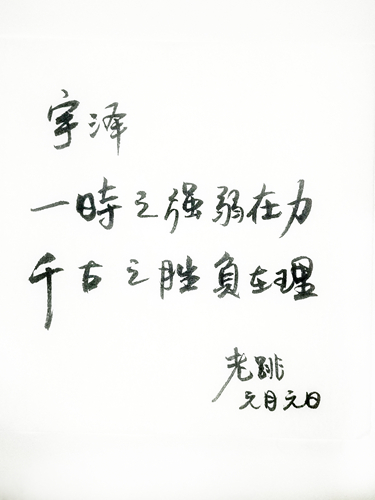 宇泽
一時之强弱在力
千古之胜負在理
老跳
元月元日